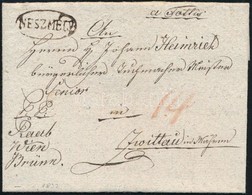 NESZMÉLY
An
Herrn H. Johann Heimrich
bürgerlichen Tuchmacher Meister
Senior
in
14
Zwittau in Mähren
Raab
Wien
Brünn.